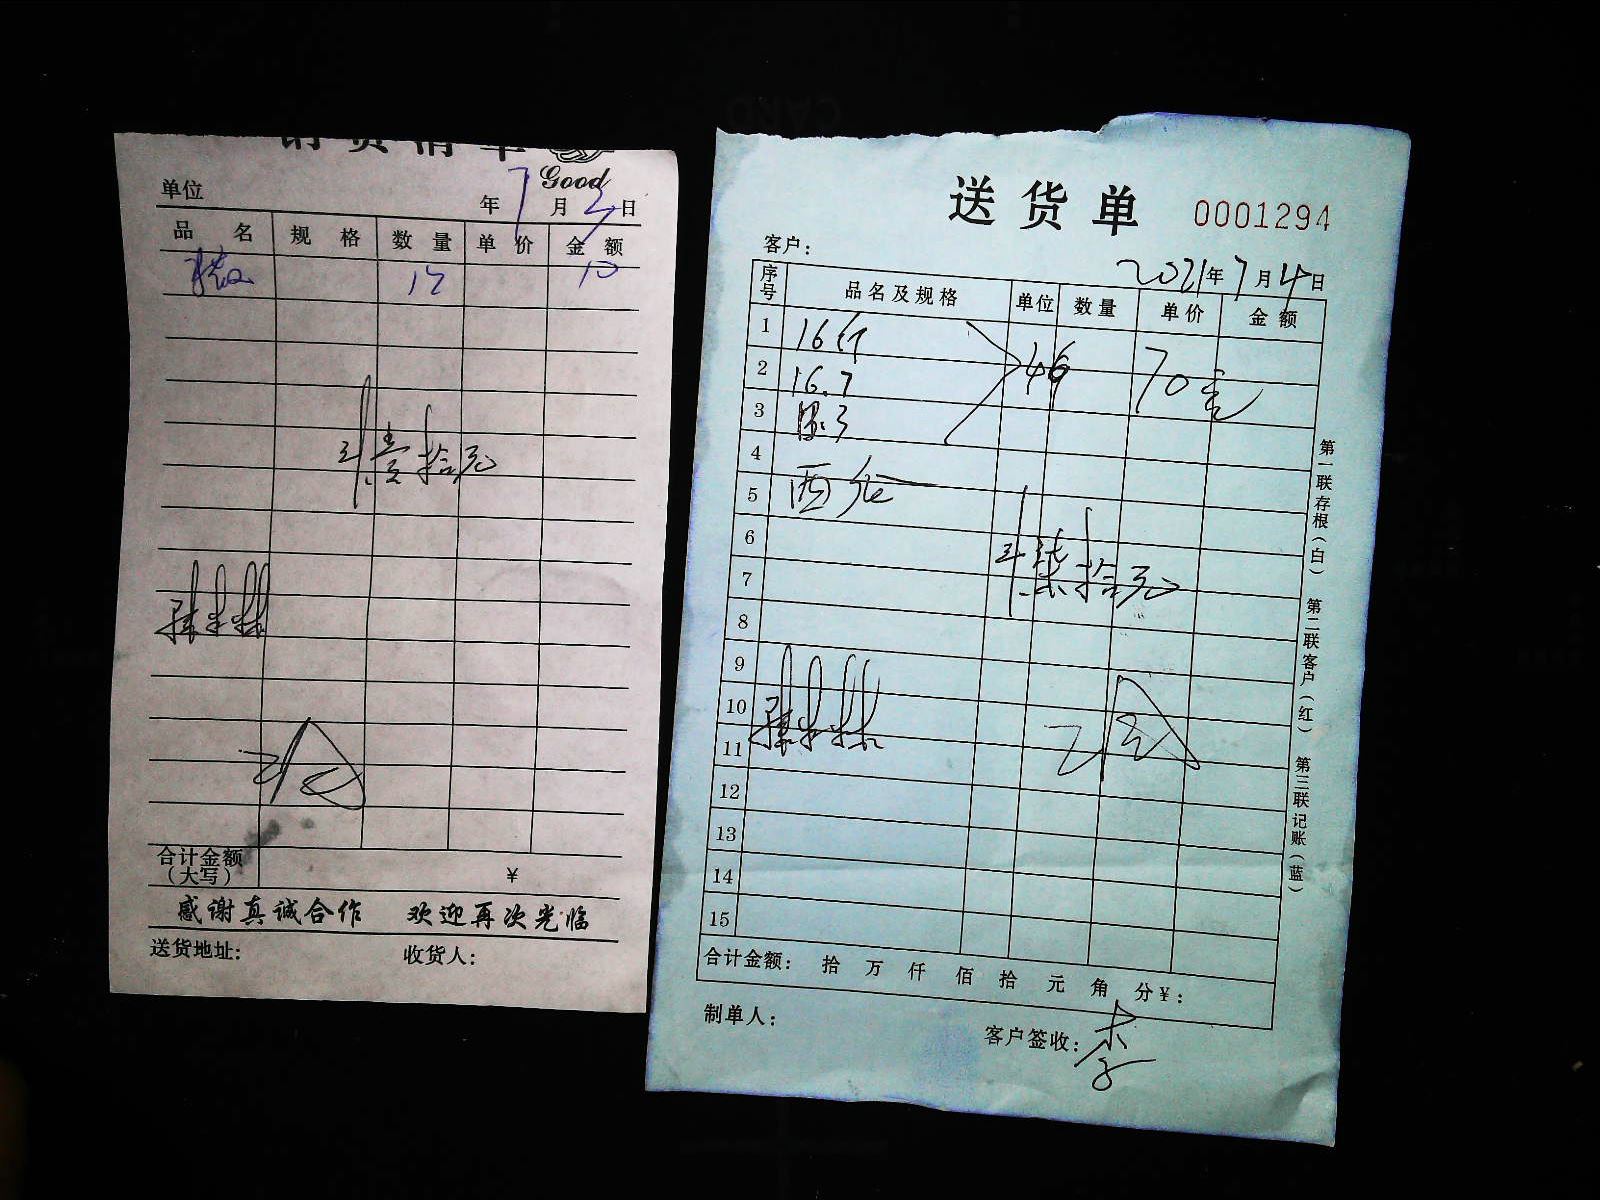 销货清单
Good
单位 年 7 月 3 日
品名 规格 数量 单价 金额
12 10
计壹拾元
合计金额
(大写) ¥
感谢真诚合作 欢迎再次光临
送货地址: 收货人:
送货单 0001294
客户:
2021年7月4日
序号 品名及规格 单位 数量 单价 金额
1 16斤 46 70元
2 16.7
3
4
5 西瓜
6
计柒拾元
7
8
9
10
11
12
13
14
15
合计金额: 拾 万 仟 佰 拾 元 角 分 ¥:
制单人: 客户签收: 李
第一联存根(白) 第二联客户(红) 第三联记账(蓝)